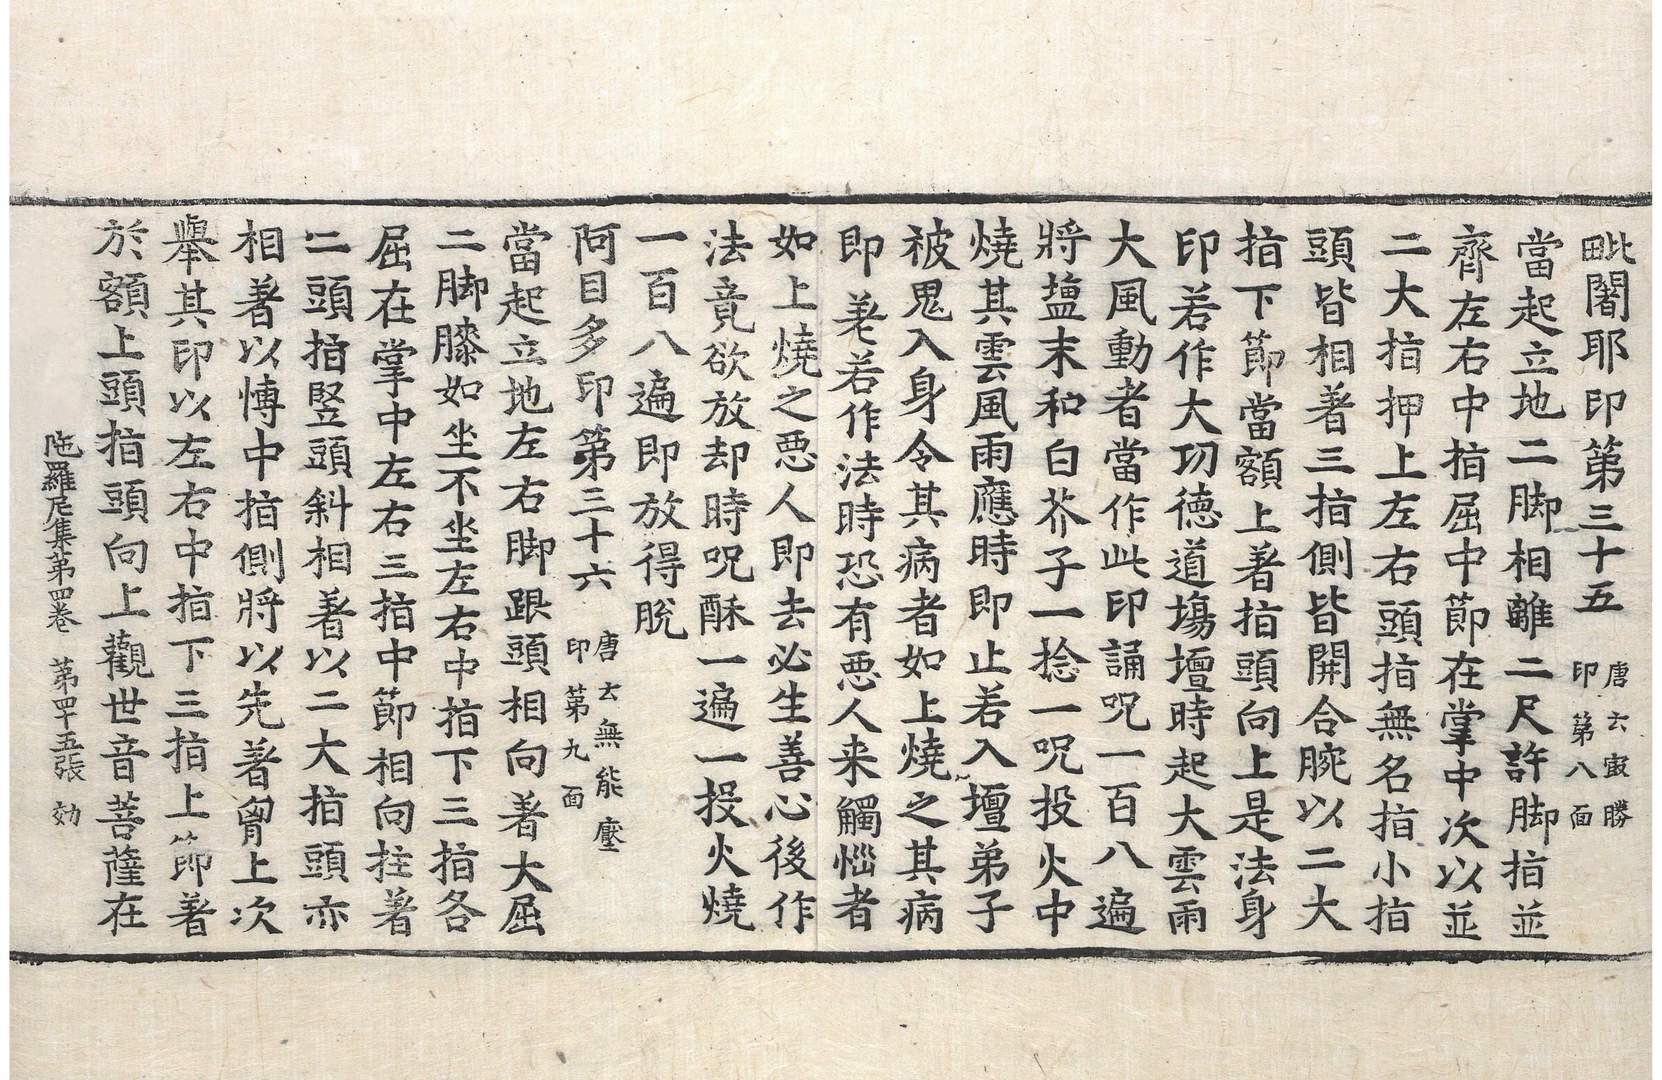 毗闍耶印第三十五 唐云㝡勝印第八面
當起立地二脚相離二尺許脚指並
齊左右中指屈中節在掌中次以並
二大指押上左右頭指無名指小指
頭皆相著三指側皆開合腕以二大
指下節當額上著指頭向上是法身
印若作大功德道塲壇時起大雲雨
大風動者當作此印誦呪一百八遍
將塩末和白芥子一捻一呪投火中
燒其雲風雨應時即止若入壇弟子
被鬼入身令其病者如上燒之其病
即差若作法時恐有惡人来觸惱者
如上燒之惡人即去必生善心後作
法竟欲放却時呪酥一遍一投火燒
一百八遍即放得脫
阿目多印第三十六 唐云無能壓印第九面
當起立地左右脚跟頭相向著大屈
二脚膝如坐不坐左右中指下三指各
屈在掌中左右三指中節相向拄著
二頭指竪頭斜相著以二大指頭亦
相著以慱中指側將以先著胷上次
舉其印以左右中指下三指上節著
於額上頭指頭向上觀世音菩薩在
陁羅尼集第四卷 第四十五張 効